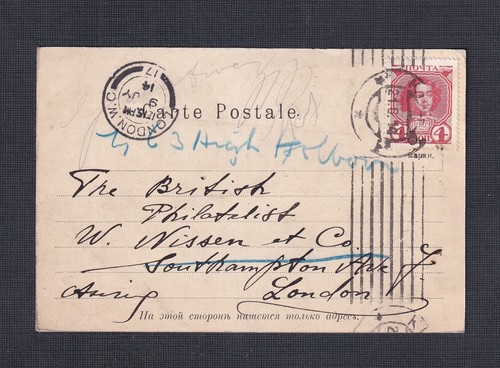 LONDON.W.C.
12.15 PM
9 JY
14
17
ПОЧТА
4 4
КОП.
Carte Postale.
марки.
63 High Holborn
The British
Philatelist
W. Nissen et Co.
Southampton
London
На этой сторонѣ пишется только адресъ.